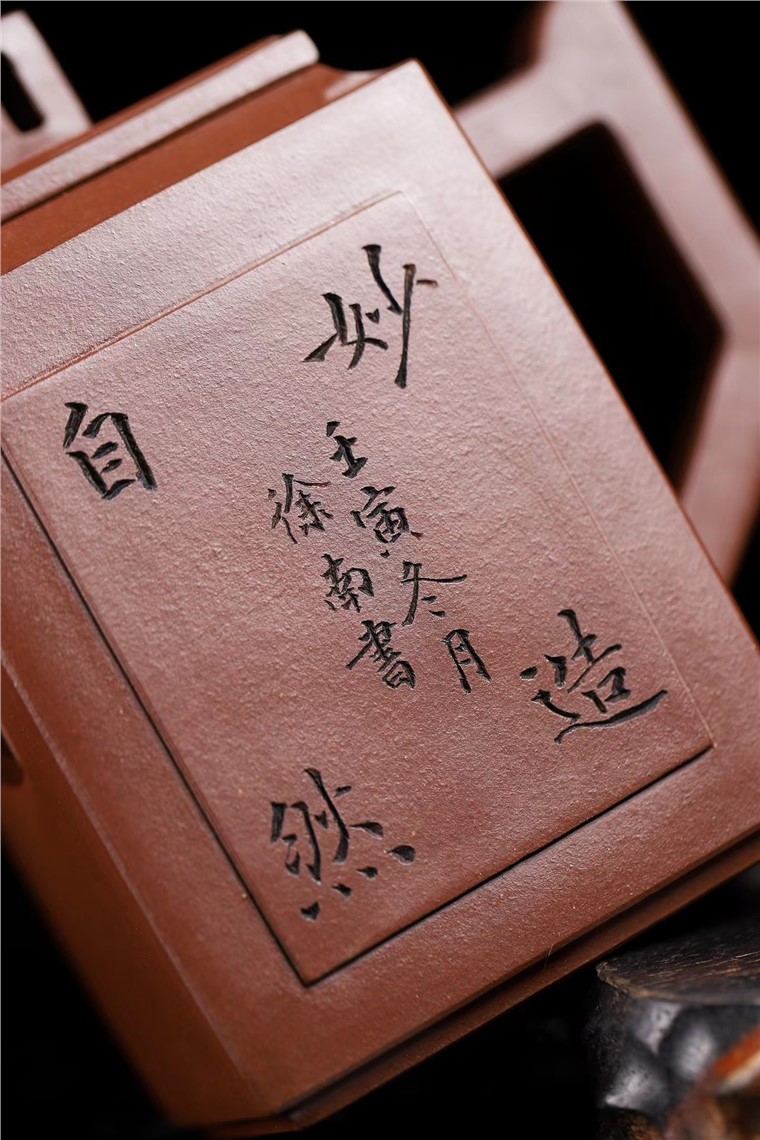 妙造
自然
壬寅冬月
徐南書